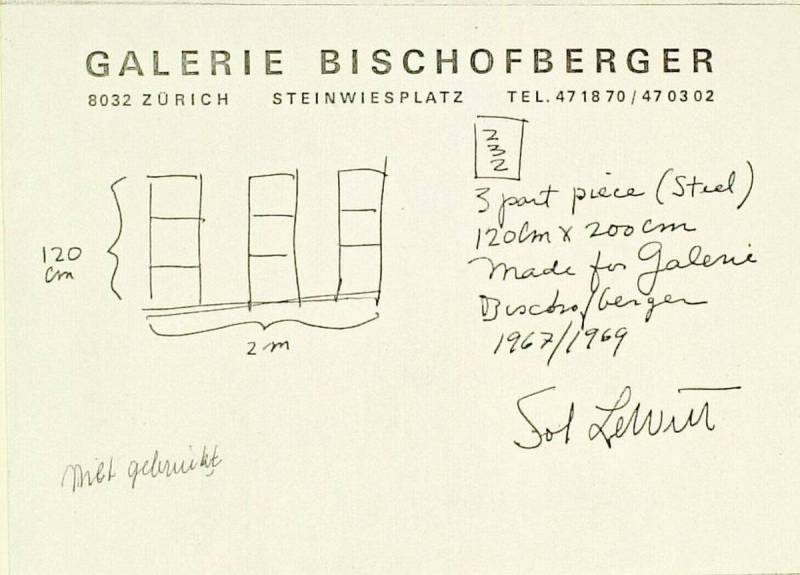 GALERIE BISCHOFBERGER
8032 ZÜRICH STEINWIESPLATZ TEL. 47 18 70 / 47 03 02
2
3
2
3 part piece (Steel)
120cm x 200cm
Made for Galerie
Bischofberger
1967/1969
120
cm
2 m
Sol LeWitt